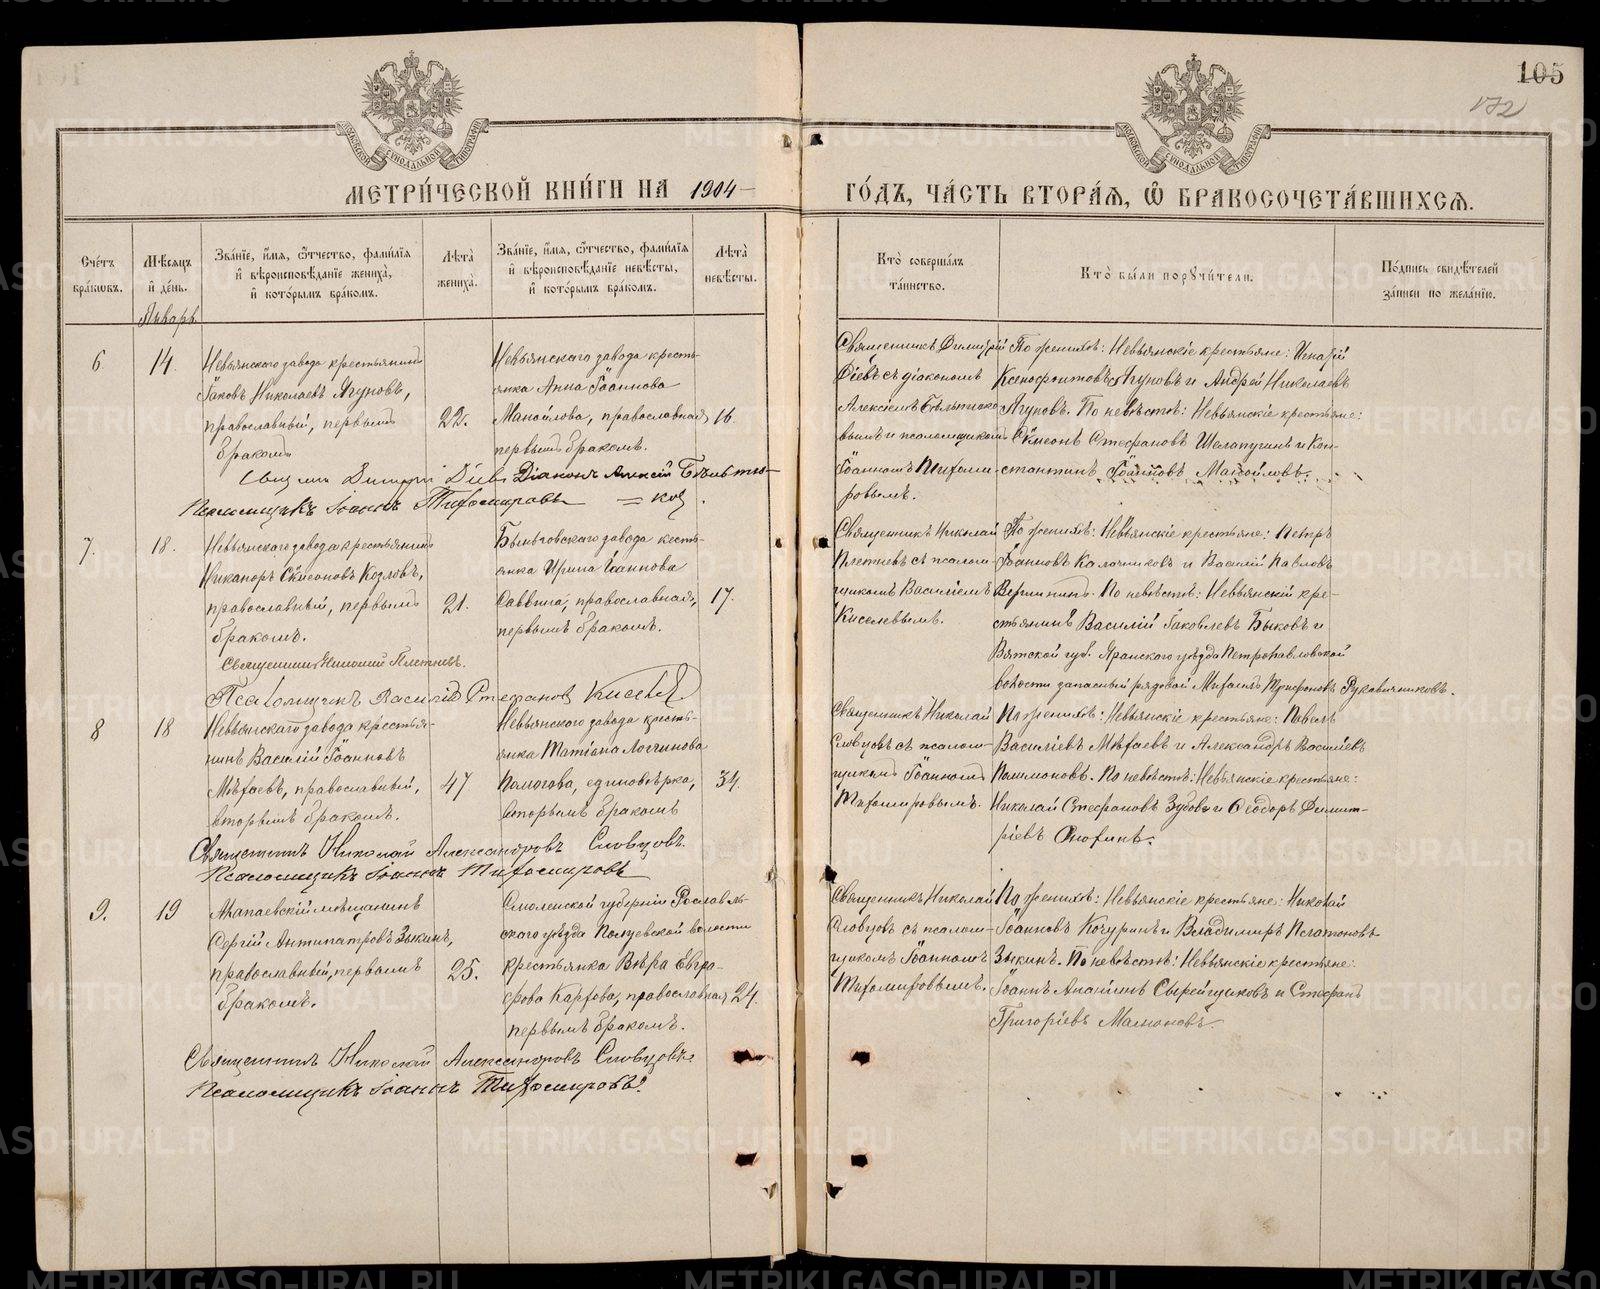 105
172
МОСКОВСКОЙ СѴНОДАЛЬНОЙ ТИПОГРАФІИ
МОСКОВСКОЙ СѴНОДАЛЬНОЙ ТИПОГРАФІИ
МЕТРИ́ЧЕСКОЙ КНИ́ГИ НА 1904 –
ГО́ДЪ, ЧА́СТЬ ВТОРА́Я, Ѽ БРАКОСОЧЕТА́ВШИХСЯ.
Сче́тъ бра́ковъ.
Мѣ́сяцъ и́ де́нь.
Зва́нїе, и́мя, ѻ́тчество, фами́лїя
и́ вѣроисповѣ́данїе жениха̀,
и́ кото́рымъ бра́комъ.
Лѣ́та жениха̀.
Зва́нїе, и́мя, ѻ́тчество, фами́лїя
и́ вѣроисповѣ́данїе невѣ́сты,
и́ кото́рымъ бра́комъ.
Лѣ́та невѣ́сты.
Кто̀ соверша́лъ та́инство.
Кто̀ бы́ли порꙋчи́тели.
По́дпись свидѣ́телей за́писи по жела́нїю.
Январь
6
14.
Невьянскаго завода крестьянинъ
Іаковъ Николаевъ Ягуновъ,
православный, первымъ
бракомъ
22.
Невьянскаго завода кресть-
янка Анна Іоаннова
Манойлова, православная,
первымъ бракомъ.
16.
Священникъ Димитрій
Діевъ съ діакономъ
Алексіемъ
и псаломщикомъ
Іоанномъ Тихоми-
ровымъ.
По женихѣ: Невьянскіе крестьяне: Игнатій
Ксенофонтовъ Ягуновъ и Андрей Николаевъ
Ягуновъ. По невѣстѣ: Невьянскіе крестьяне:
Сѵмеонъ Стефановъ Шелапугинъ и Кон-
стантинъ Іоанновъ Манойловъ.
Димитрій Діевъ Діаконъ Алексій
Псаломщикъ Іоаннъ Тихомировъ
7.
18.
Невьянскаго завода крестьянинъ
Никаноръ Сѵмеоновъ Козловъ,
православный, первымъ
бракомъ.
21.
Быньговскаго завода кесть-
янка Ирина Іоаннова
Саввина, православная,
первымъ бракомъ.
17.
Священникъ Николай
Плетневъ съ псалом-
щикомъ Василіемъ
Киселевымъ.
По женихѣ: Невьянскіе крестьяне: Петръ
Іоанновъ Калачниковъ и Василій Павловъ
Вершининъ. По невѣстѣ: Невьянскій кре-
стьянинъ Василій Іаковлевъ Быковъ и
Вятской губ. Яранскаго уѣзда Петропавловской
волости запасный рядовой Михаилъ Трифоновъ Рукавичниковъ.
Священникъ Николай Плетневъ.
Псаломщикъ Василій Стефановъ Киселевъ
8
18
Невьянскаго завода крестья-
нинъ Василій Іоанновъ
Мѣхаевъ, православный,
вторымъ бракомъ.
47
Невьянскаго завода кресть-
янка Татіана Логгинова
Пологова, единовѣрка,
вторымъ бракомъ
34.
Священникъ Николай
Словцовъ съ псалом-
щикомъ Іоанномъ
Тихомировымъ.
По женихѣ: Невьянскіе крестьяне: Павелъ
Василіевъ Мѣхаевъ и Александръ Василіевъ
Пашмоновъ. По невѣстѣ: Невьянскіе крестьяне:
Николай Стефановъ Зубовъ и Ѳеодоръ Димит-
ріевъ
Священникъ Николай Александровъ Словцовъ.
Псаломщикъ Іоаннъ Тихомировъ
9.
19
Алапаевскій мѣщанинъ
Сергій Антипатровъ Зыкинъ,
православный, первымъ
бракомъ.
25.
Смоленской губерніи Рославль-
скаго уѣзда волости
крестьянка Вѣра Евгра-
фова Карпова, православная,
первымъ бракомъ.
24.
Священникъ Николай
Словцовъ съ псалом-
щикомъ Іоанномъ
Тихомировымъ.
По женихѣ: Невьянскіе крестьяне: Николай
Іоанновъ Кочуринъ и Владимиръ Платоновъ
Зыкинъ. По невѣстѣ: Невьянскіе крестьяне:
Іоаннъ Сырейщиковъ и Стефанъ
Григоріевъ Мамоновъ.
Священникъ Николай Александровъ Словцовъ
Псаломщикъ Іоаннъ Тихомировъ.
METRIKI.GASO-URAL.RU